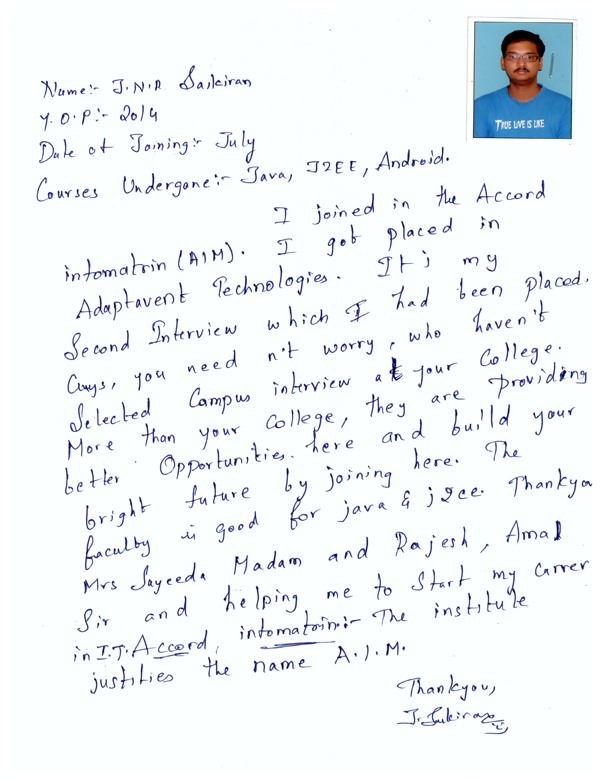 Name:- J.N.R. Saikiran
Y.O.P:- 2014
Date of Joining:- July
Courses Undergone:- Java, J2EE, Android.
I joined in the Accord
intomatrin (AIM). I got placed in
Adaptavent Technologies. It's my
Second Interview which I had been placed.
Guys, you need n't worry, who haven't
Selected Campus interview at your College.
More than your College, they are providing
better Opportunities. here and build your
bright future by joining here. The
faculty is good for java & j2ee. Thankyou
Mrs Sayeeda Madam and Rajesh, Amal
Sir and helping me to Start my carrer
in I.T. Accord, intomatrin:- The institute
justifies the name A.I.M.
Thankyou,
J. Saikiran
TRUE LIVE IS LIKE